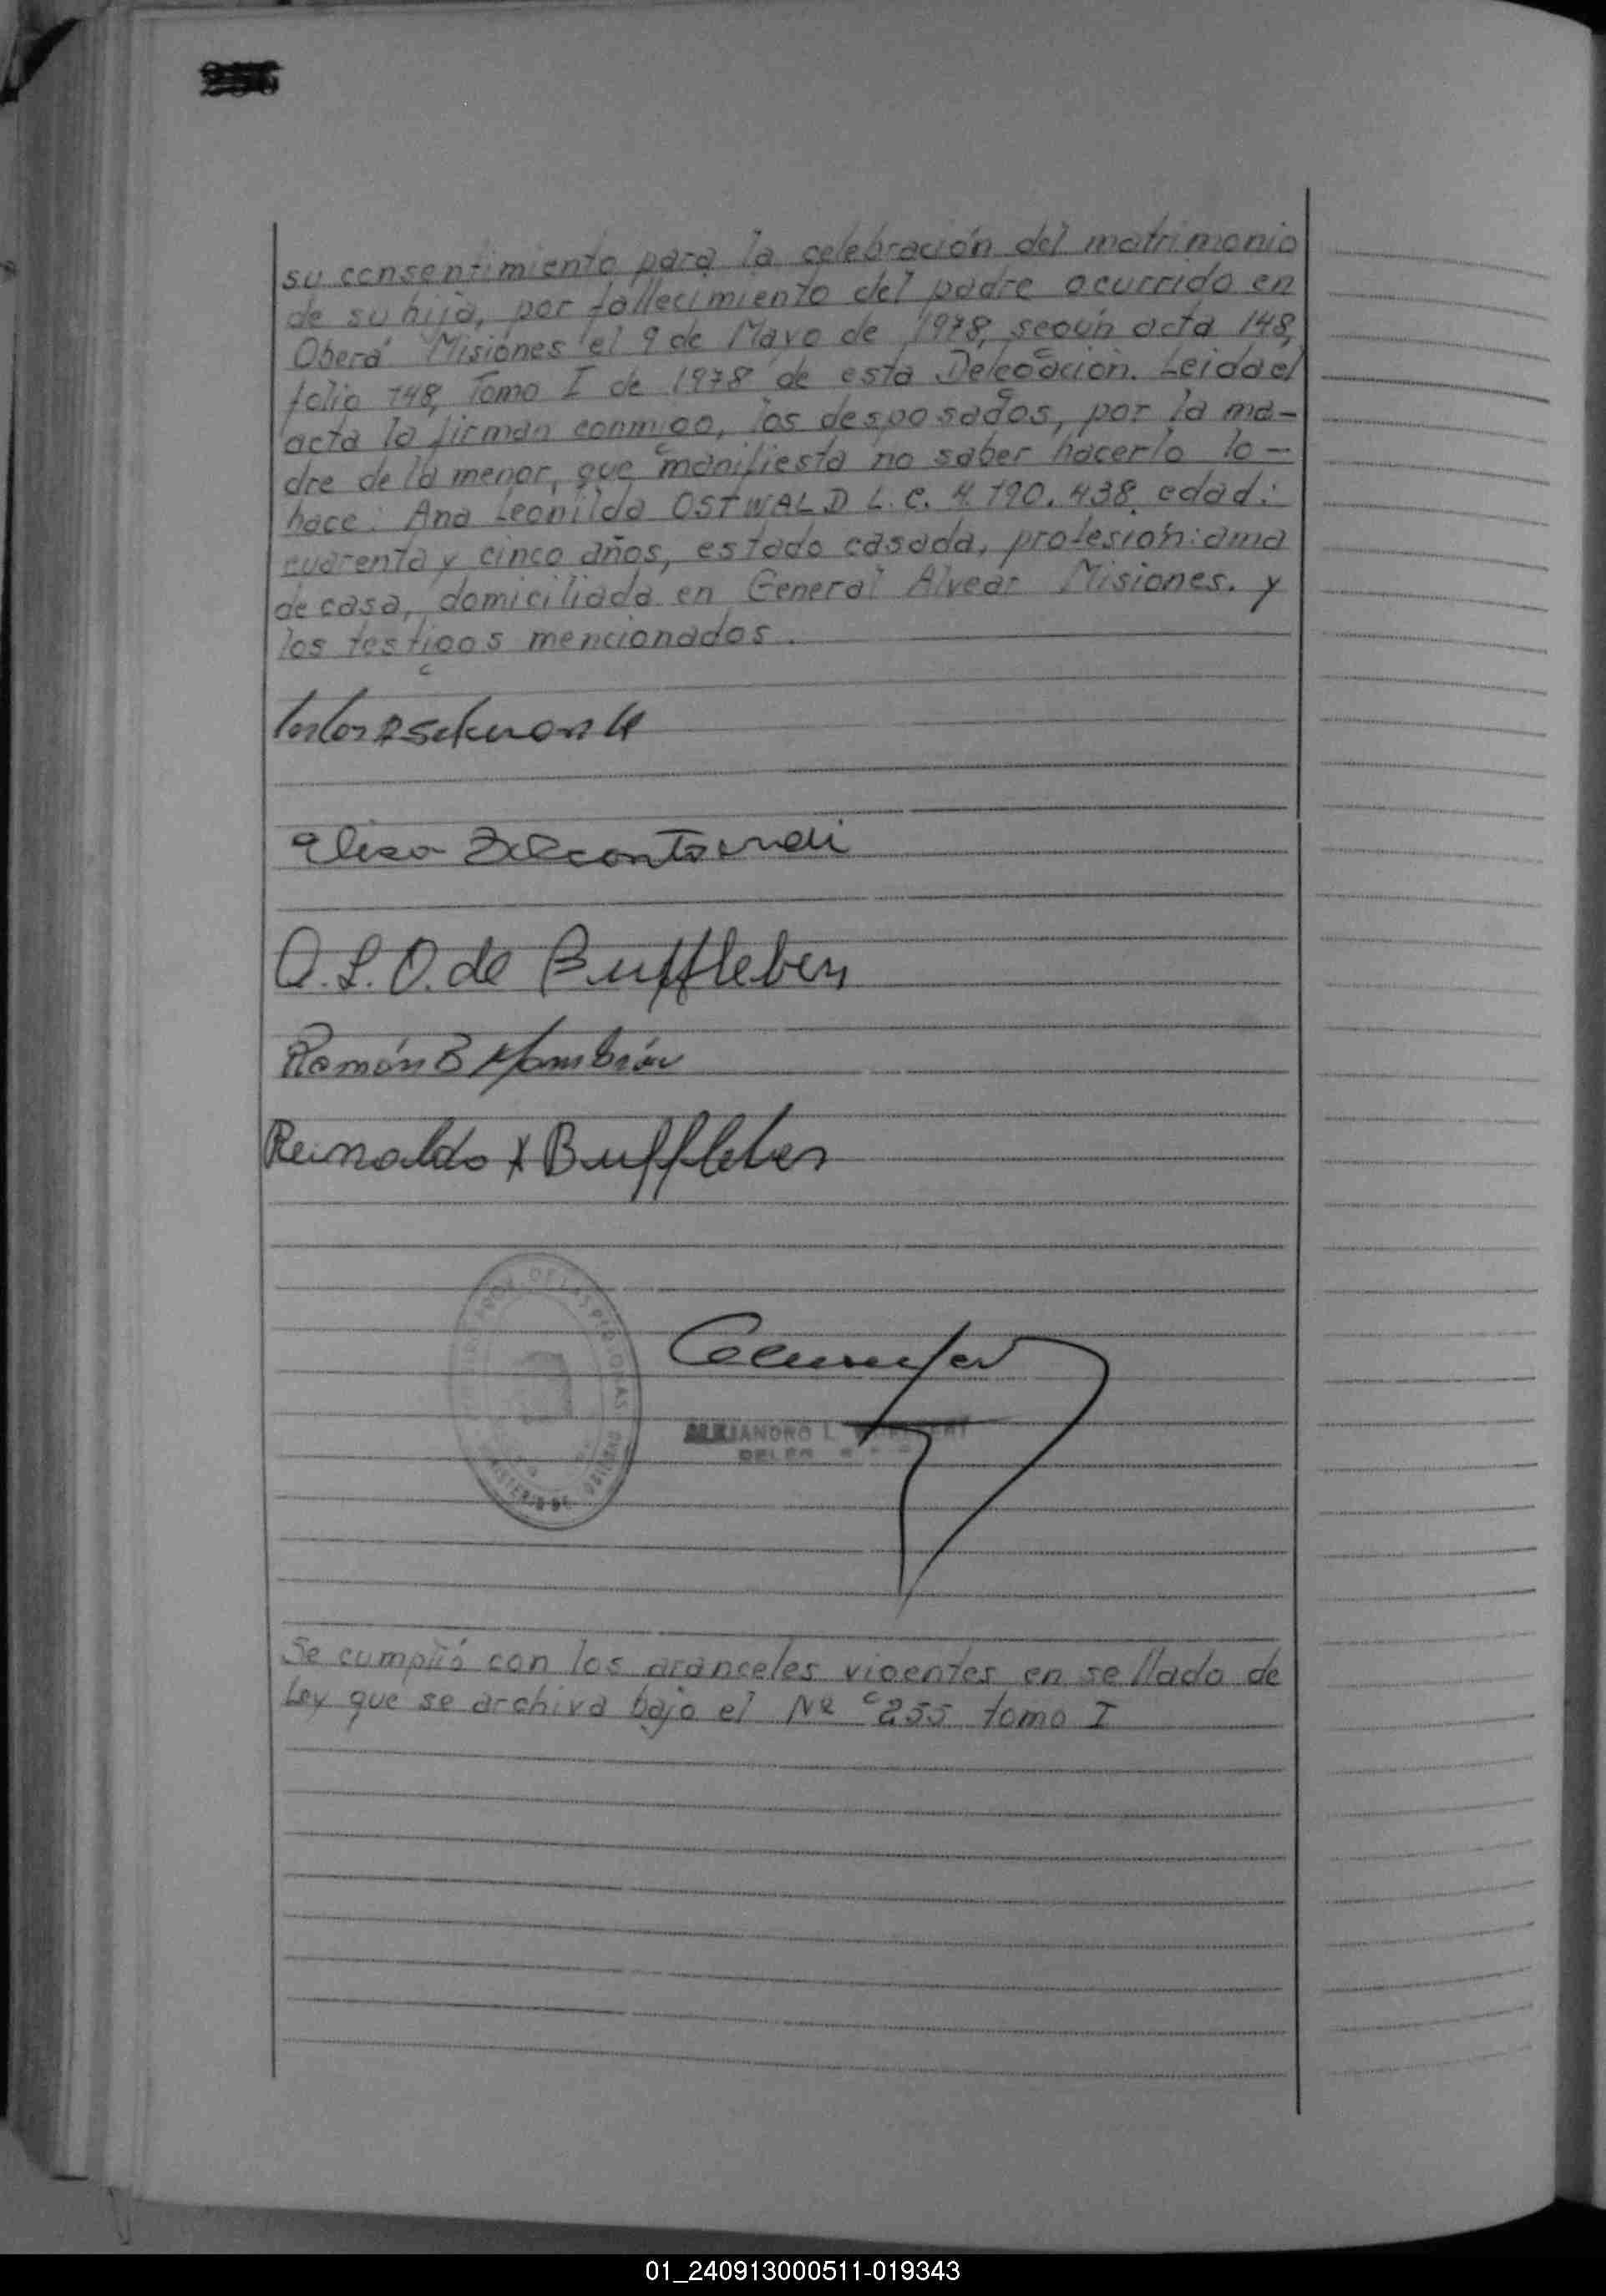 su consentimiento para la celebración del matrimonio
de su hija, por fallecimiento del padre ocurrido en
Oberá Misiones el 9 de Mayo de 1978, según acta 148,
folio 148, Tomo I de 1978 de esta Delegación. Leida el
acta la firman conmigo, los desposados, por la ma-
dre de la menor, que manifiesta no saber hacerlo lo -
hace: Ana Leonilda OSTWALD L.C. 4.190.438 edad:
cuarenta y cinco años, estado casada, profesión: ama
de casa, domiciliada en General Alvear Misiones. y
los testigos mencionados.
Elisa
O.L.O. de Buffleben
Ramón B
Reinaldo X Buffleben
DE LAS PERSONAS
MINISTERIO DE GOBIERNO
ALEJANDRO L.
Se cumplió con los aranceles vigentes en sellado de
Ley que se archiva bajo el Nº 255 tomo I
01_240913000511-019343